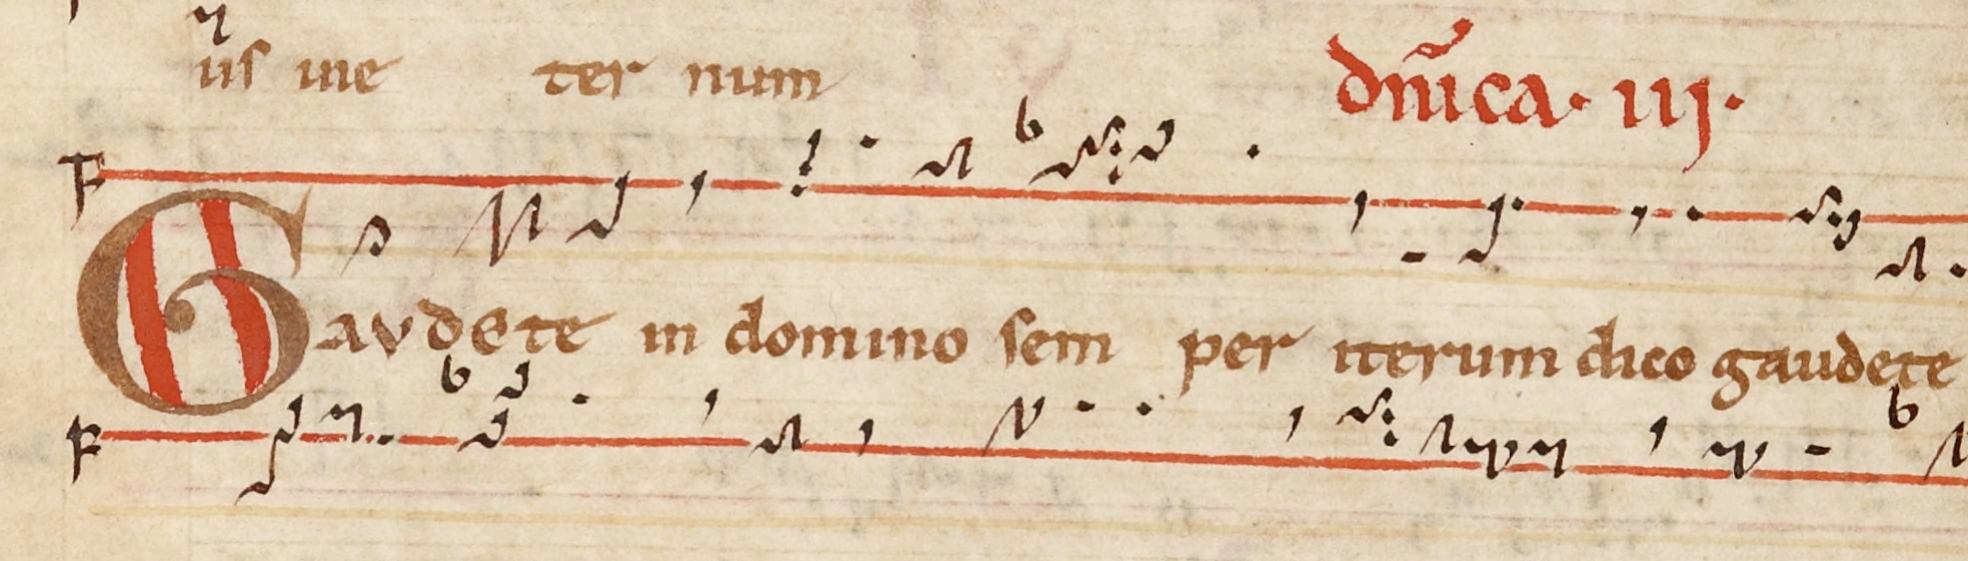 iis ine ter num
dñica. iij.
Gavdete in domino sem per iterum dico gaudete